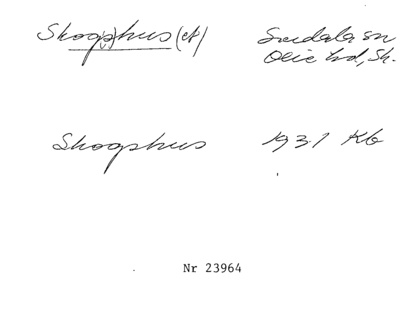 Skog(s)hus (et) Svedala sn
Oxie hd, Sk.
Skogshus 1931 Kb
Nr 23964